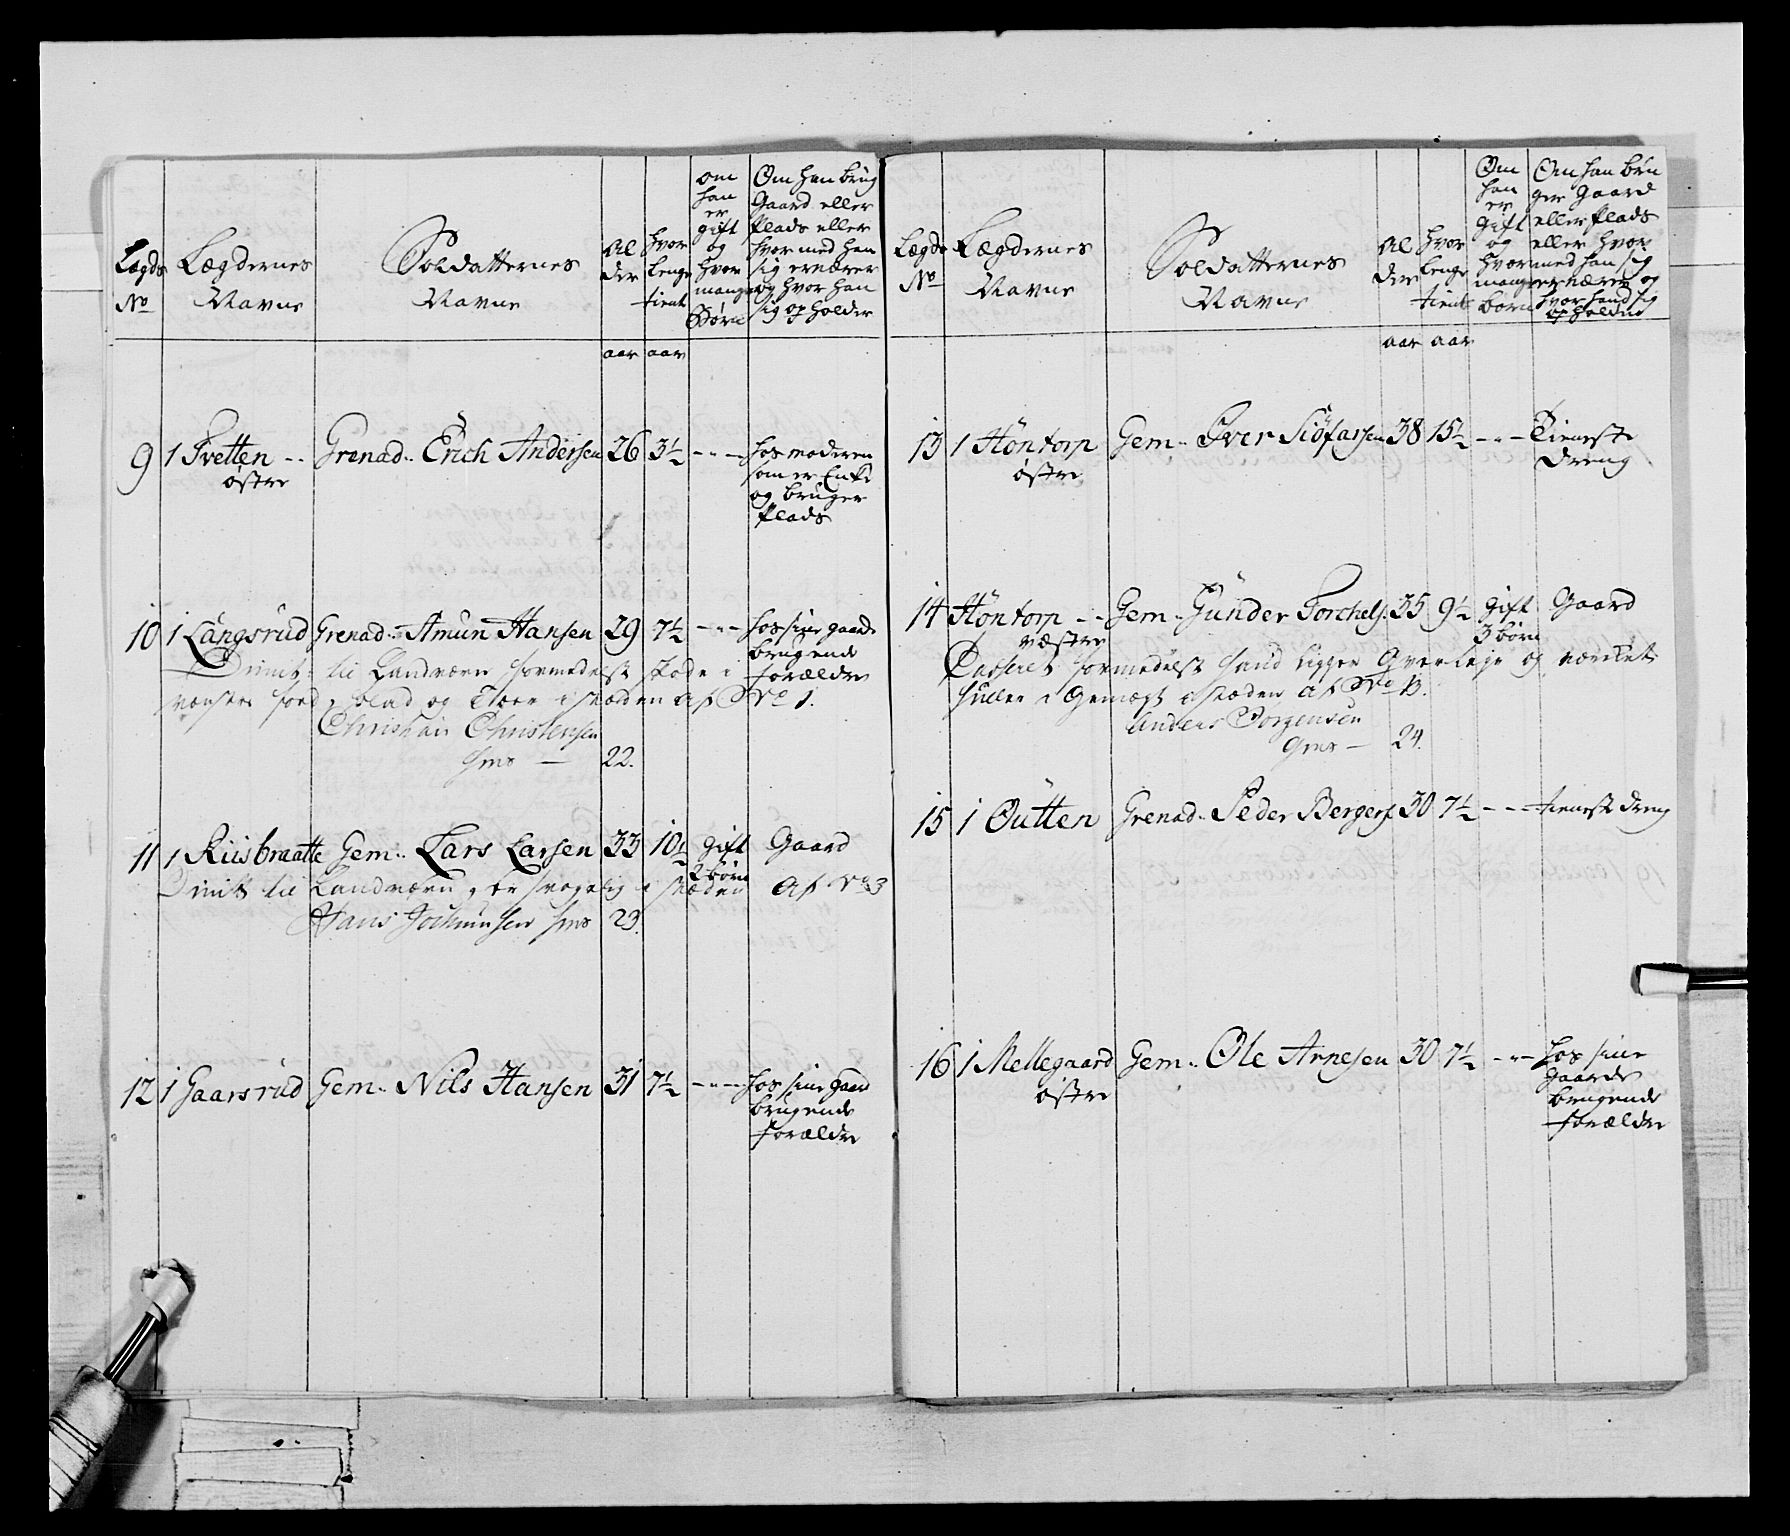 Lægds
No
Lægdernes
Navne
Soldatternes
Navne
Al
der
hvor
lenge
tient
om
han
er
gift
og
hvor
mange
Børn
Om han brug
Gaard eller
Plads eller
hvor med han
sig ernærer
og hvor han
sig opholder
aar aar
9 1 Tvetten -- Grenad.. Erich Andersen 26 3½ -"- hos moderen
østre som er Enke
og bruger
Plads
10 1 Langsrud Grenad.. Amun Hansen 29 7½ -"- hos sine gaard
brugende
forældre
Dimit: til Landværn formedelst skade i
venstre i stæden af No 1.
Christian Christensen
22.
11 1 Riisbraatte Gem.. Lars Larsen 33 10½ gift Gaard
2 børn
Dimit: til Landværn, er svagelig i stæden af No 3
Hans Jochumsen 23.
12 1 Gaarsrud Gem.. Nils Hansen 31 7½ -"- hos sine gaard
brugende
forældre
Lægds
No
Lægdernes
Navne
Soldatternes
Navne
Al
der
hvor
lenge
tient
Om
han
er
gift
og
hvor
mange
børn
Om han brü
ger Gaard
eller Plads
eller hvor
med han sig
ernærer og
hvor hand sig
opholder
aar aar
13 1 Höntorp Gem.. Iver Siöfarsen 38 15½ -"- Tieneste
østre dreng
14 Höntorp -- Gem.. Gunder Torchels. 35 9½ gift Gaard
væstre 3 børn
Casseret formedelst hand ligger og værcket
i stæden af No
Anders Jörgensen
24.
15 1 Outten Grenad.. Peder Bergers. 30 7½ -- tienest dreng
16 1 Mellegaard Gem.. Ole Arnesen 30 7½ -"- hos sine
østre gaards
brugende
forældre